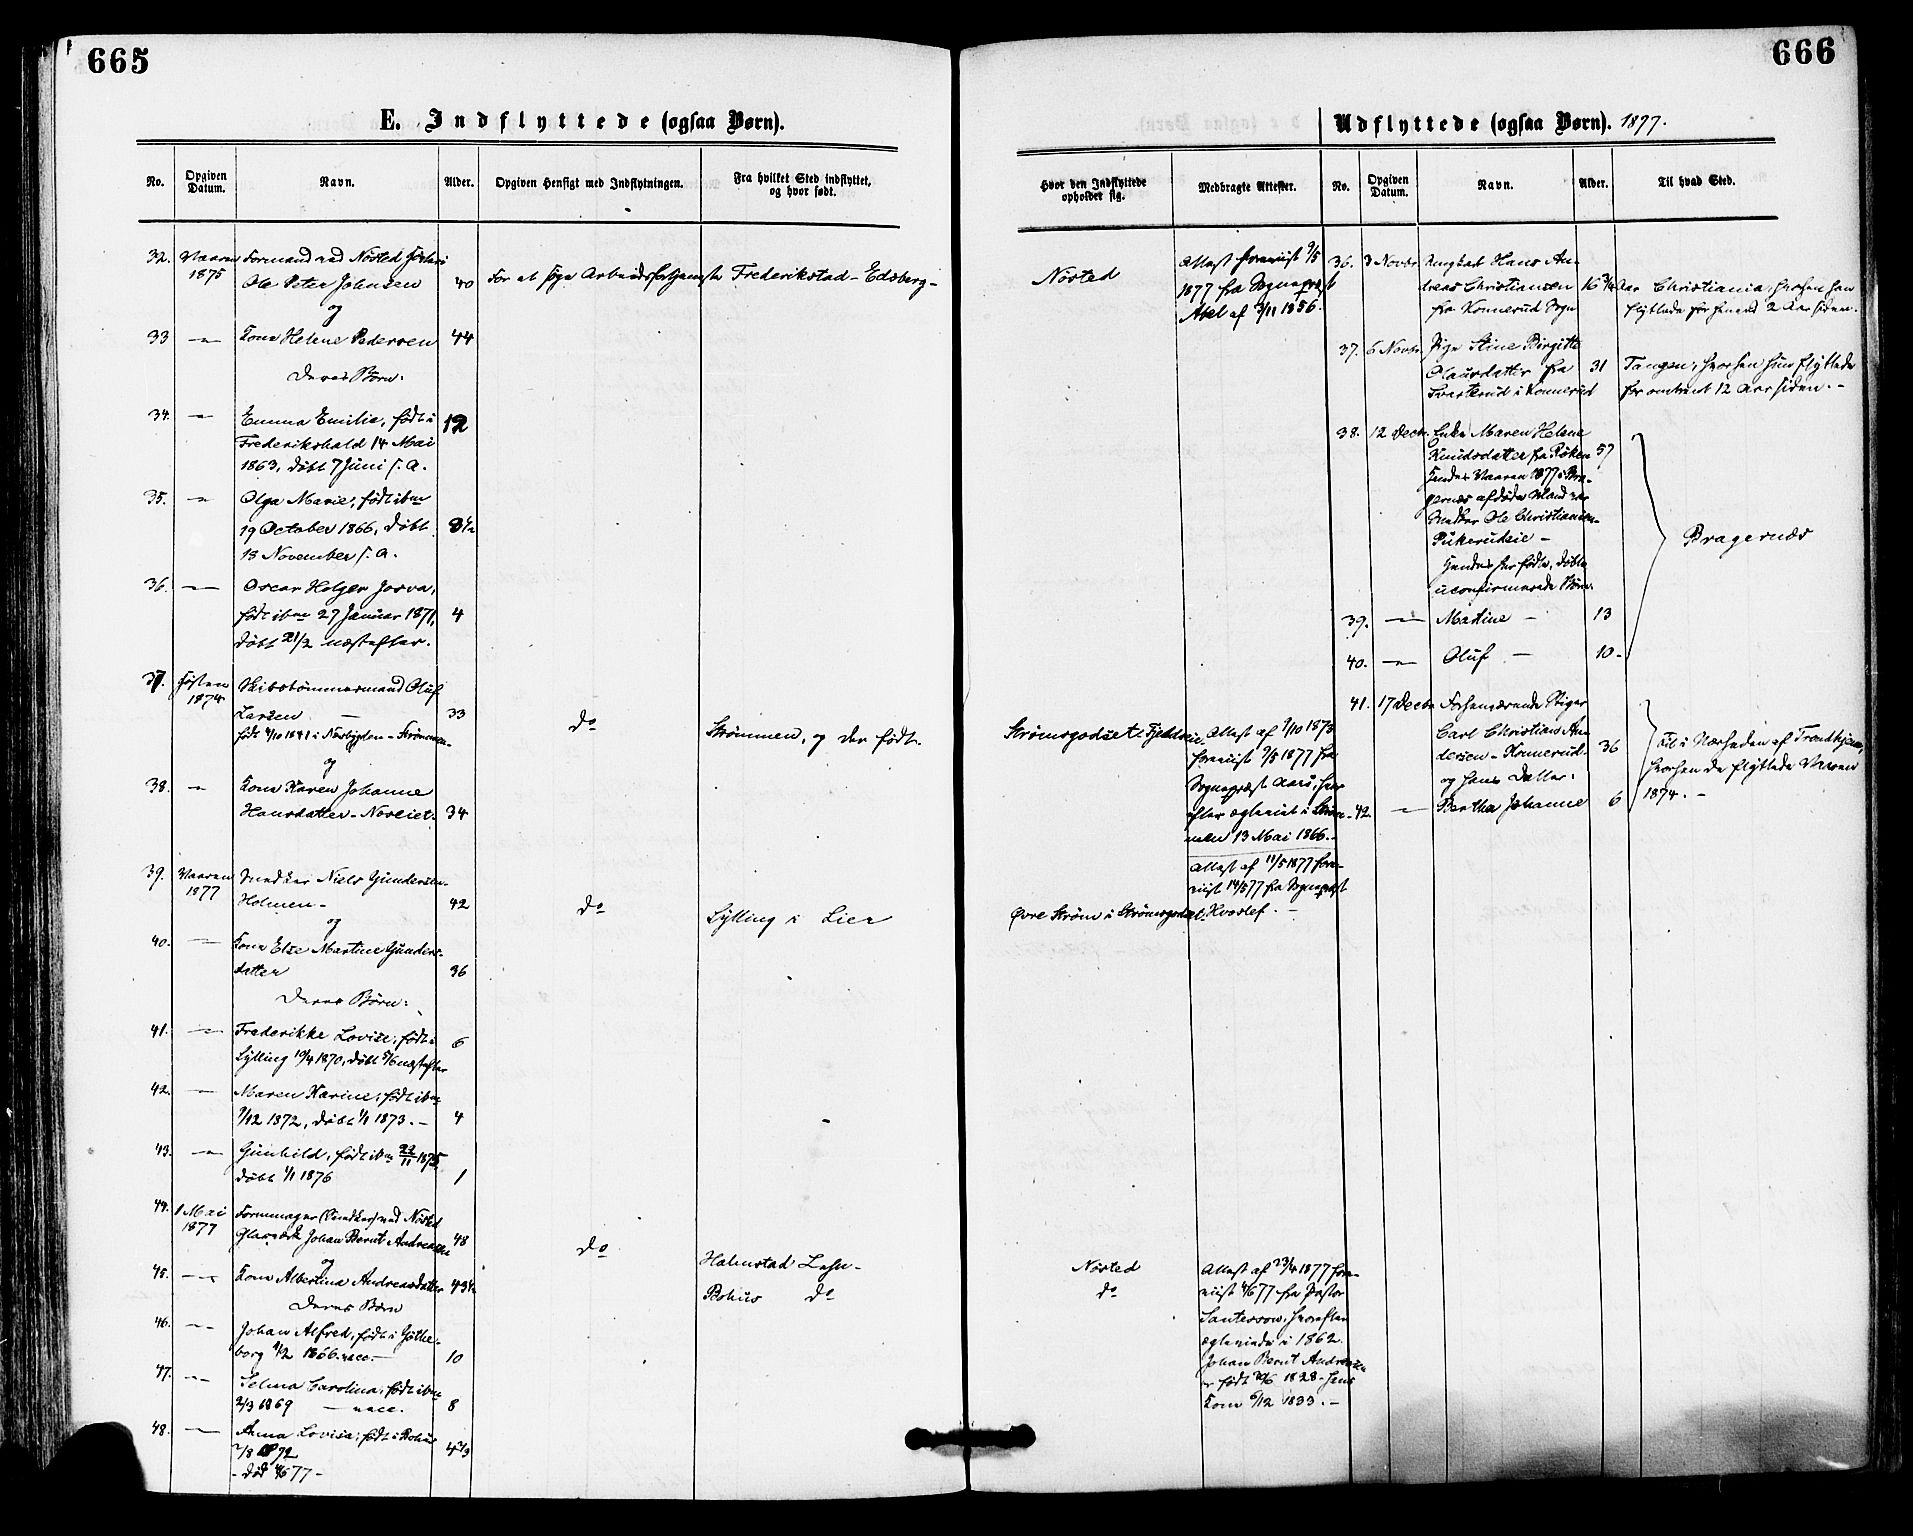 665
E. Indflyttede (ogsaa Børn).
No.
Opgiven Datum.
Navn.
Alder.
Opgiven Hensigt med Indflytningen.
Fra hvilket Sted indflyttet, og hvor født.
32. Vaaren Formand ved Nøsted
1875 Ole Peter Johnsen 40 For at søge Arbeidsfortjeneste Frederikstad - Edsberg -
og
33 Kone Helene Pedersen 44
Deres Børn:
34. Emma Emilie, født i 12
Frederikshald 14 Mai
1863, døbt 7 Juni s. A.
35. Olga Marie, født ibm
19 October 1866, døbt 8½
13 November s. A.
36. Oscar Holger Josva,
født ibm 27 Januar 1871, 4
døbt 21/2 næstefter.
37. Høsten Skibstømmermand Oluf
1874 Larsen 33 Do Strømmen, og der født.
født 4/10 1841 i
og
38. Kone Karen Johanne
Hansdatter - Noreiet. 34
39. Vaaren Snedker Niels Gundersen
1877 Holmen - 42 Do Sylling i Lier
og
40. Kone Else Martine Gunders-
datter 36
Deres Børn:
41. Frederikke Lovise, født i 6
Sylling 19/4 1870, døbt 5/6 næstefter
42. Maren Karine, født ibm
7/12 1872, døbt 1/1 1873. - 4
43. Gunhild, født ibm 22/11 1875
døbt 1/1 1876 1
44. 1 Mai Formmager (Snedker) ved Nøsted
1877 Glasværk Johan Bernt Andreasen 48 Do
og
Halmstad Lehn -
45. Kone Albertina Andreasdatter 43½
Bohus Do
Deres Børn
46. Johan Alfred, født i Göthe-
borg 4/2 1866. vacc. - 10
47. Selma Carolina, født ibm
2/3 1869 - vacc. 8
48. Anna Lovisa, født i Bohus
7/8 1872 4 2/3
- død 4/5 77 -
666
Udflyttede (ogsaa Børn). 1877.
Hvor den Indflyttede opholder sig.
Medbragte Attester.
No.
Opgiven Datum.
Navn.
Alder.
Til hvad Sted.
Nøsted
Attest foreviist 9/5
1877 fra Sognepræst
Abel af 3/11 1856.
Strømsgodset
Attest af 7/10 1873
foreviist 9/5 1877 fra
Sognepræst Aars, hvor-
efter ægteviet i Strøm-
men 13 Mai 1866. -
Øvre Strøm i Strømsgodset.
Attest af 11/5 1877 fore-
viist 14/5 77 fra Sognepræst
Hvoslef. -
Nøsted
Do
Attest af 23/4 1877 fore-
viist 4/6 77 fra Pastor
Santesson, hvorefter
ægteviede i 1862.
Johan Bernt Andreasen
er født 20/6 1828 - hans
Kone 6/12 1833. -
36. 3 Novbr. Ungkarl Hans An-
dreas Christiansen 16¾ Aar Christiania, hvorhen han
fra Konnerud Sogn flyttede for henved 2 Aar siden.
37. 6 Novbr. Pige Stine Birgitte
Olausdatter fra 31 Tangen, hvorhen hun flyttede
i Konnerud for omtrent 12 Aar siden. -
38. 12 Decbr. Enke Maren Helene
Knudsdatter fra Røken 57
Hendes Vaaren 1877 i Bra-
gernæs afdøde Mand var
Snedker Ole Christiansen
Pukerudeie -
Hendes her fødte, døbte
uconfirmerede Børn.
Bragernæs
39. Martine - 13
40. Oluf - 10 -
41. 17 Decbr. Forhenværende Stiger
Carl Christian An-
dersen - Konnerud - 36
og hans Datter:
42. Bertha Johanne 6
i Nærheden af Trondhjem,
hvorhen de flyttede Vaaren
1874. -